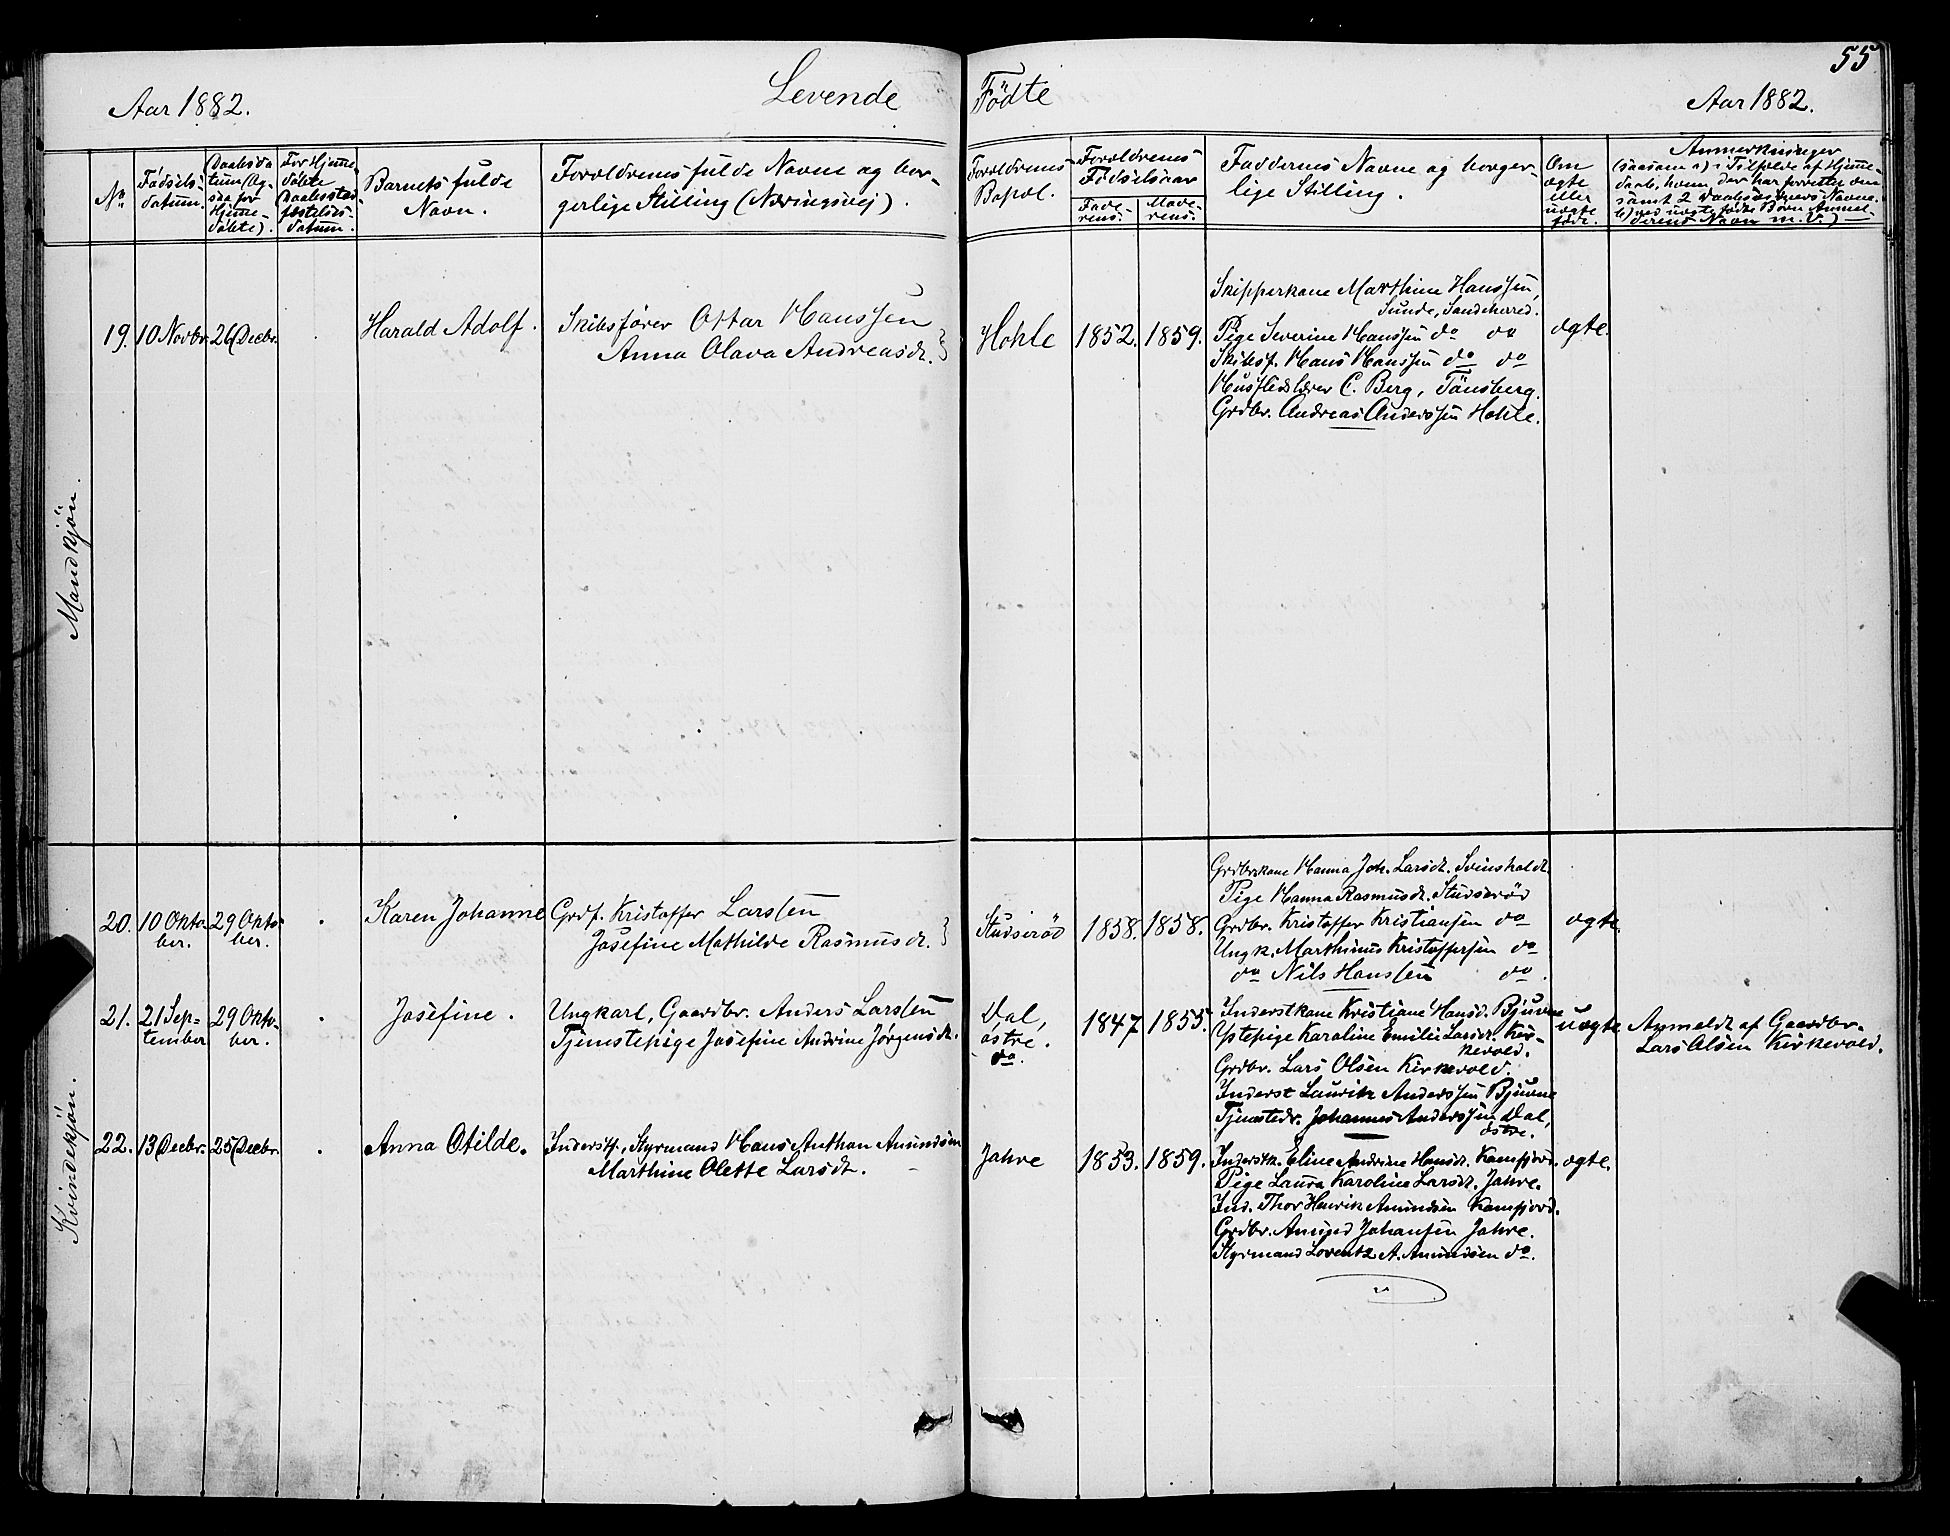 55
Aar 1882.
Levende Födte
Aar 1882.
No
Födsels-
datum.
Daabsda
tum (Og-
saa for
Hjeme-
döbte).
For Hjeme-
döbte
Daabsstad-
fæstelses-
datum.
Barnets fulde
Navn.
Forældrenes fulde Navne og bor-
gerlige Stilling (Næringsvej).
Forældrenes
Bopæl.
Forældrenes
Födselsaar
Fade-
rens.
Mode-
rens.
Faddernes Navne og borger-
lige Stilling.
Om
ægte
eller
uægte
födt.
Anmerkninger
(saasom a) i Tilfælde af Hjeme-
daab, hvem der har forrettet den
samt 2 Daabsvidners Navne.
b) ved uægtefödte Börn Anmel-
derens Navn m. V.)
Mandkjön.
19.
10 Novbr.
26 Decbr.
Harald Adolf.
Skibsförer Ottar Hanssen
Anna Olava Andreasdt.
Hohle
1852.
1859.
Skipperkone Marthine Hanssen,
Sunde, Sandeherred.
Pige Severine Hanssen do do
Skibsf. Hans Hanssen do do
Husflidslærer C. Berg, Tönsberg.
Grdbr. Andreas Anderssen Hohle.
ægte.
Kvindekjön.
20.
10 Okto-
ber.
29 Okto-
ber.
Karen Johanne
Grdf. Kristoffer Larssen
Josefine Mathilde Rasmusdt.
Studseröd
1858.
1858.
Grdbrkone Hanna Joh. Larsdt. Svinsholdt.
Pige Hanna Rasmusdt. Studseröd
Grdbr. Kristoffer Kristiansen do
Ungk. Marthinus Kristoffersen do
do Nils Hanssen do.
ægte.
21.
21 Sep-
tember
29 Okto-
ber.
Josefine.
Ungkarl, Gaardbr. Anders Larssen
Tjenstepige Josefine Andrine Jørgensdt.
Dal,
östre.
do.
1847
1855.
Inderstkone Kristiane Hansd. Bjuvne
Ystepige Karoline Emilie Larsdt. Kir-
kevold.
Grdbr. Lars Olsen Kirkevold.
Inderst Laurits Anderssen Bjuvne
Tjenstedr. Johannes Anderssen Dal,
östre.
uægte
Anmeldt af Gaardbr.
Lars Olsen Kirkevold.
22.
13 Decbr.
25 Decbr.
Anna Otilde.
Inderstf., Styrmand Hans Anthon Amundsen
Marthine Olette Larsdt.
Jahre
1853.
1859.
Inderstk. Eline Andrine Hansdt. Kamfjord.
Pige Laura Karoline Larsdt. Jahre.
Ind. Thor Henrik Amundsen Kamfjord.
Grdbr. Amund Johansen Jahre.
Styrmand Lorentz A. Amundsen do.
ægte.